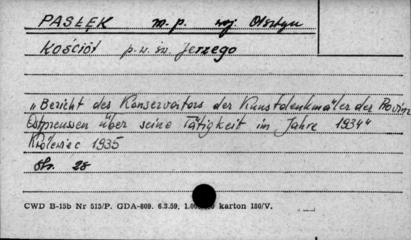 PASŁĘK m.p. woj. Olsztyn
KOŚCIÓŁ p.w. św. Jerzego
"Bericht des Konservators der Kunstdenkmäler der Provinz
Ostpreussen über seine Tätigkeit im Jahre 1934"
Królewiec 1935
Str. 28
CWD B-15b Nr 515/P. GDA-809. 6.3.59. karton 180/V.